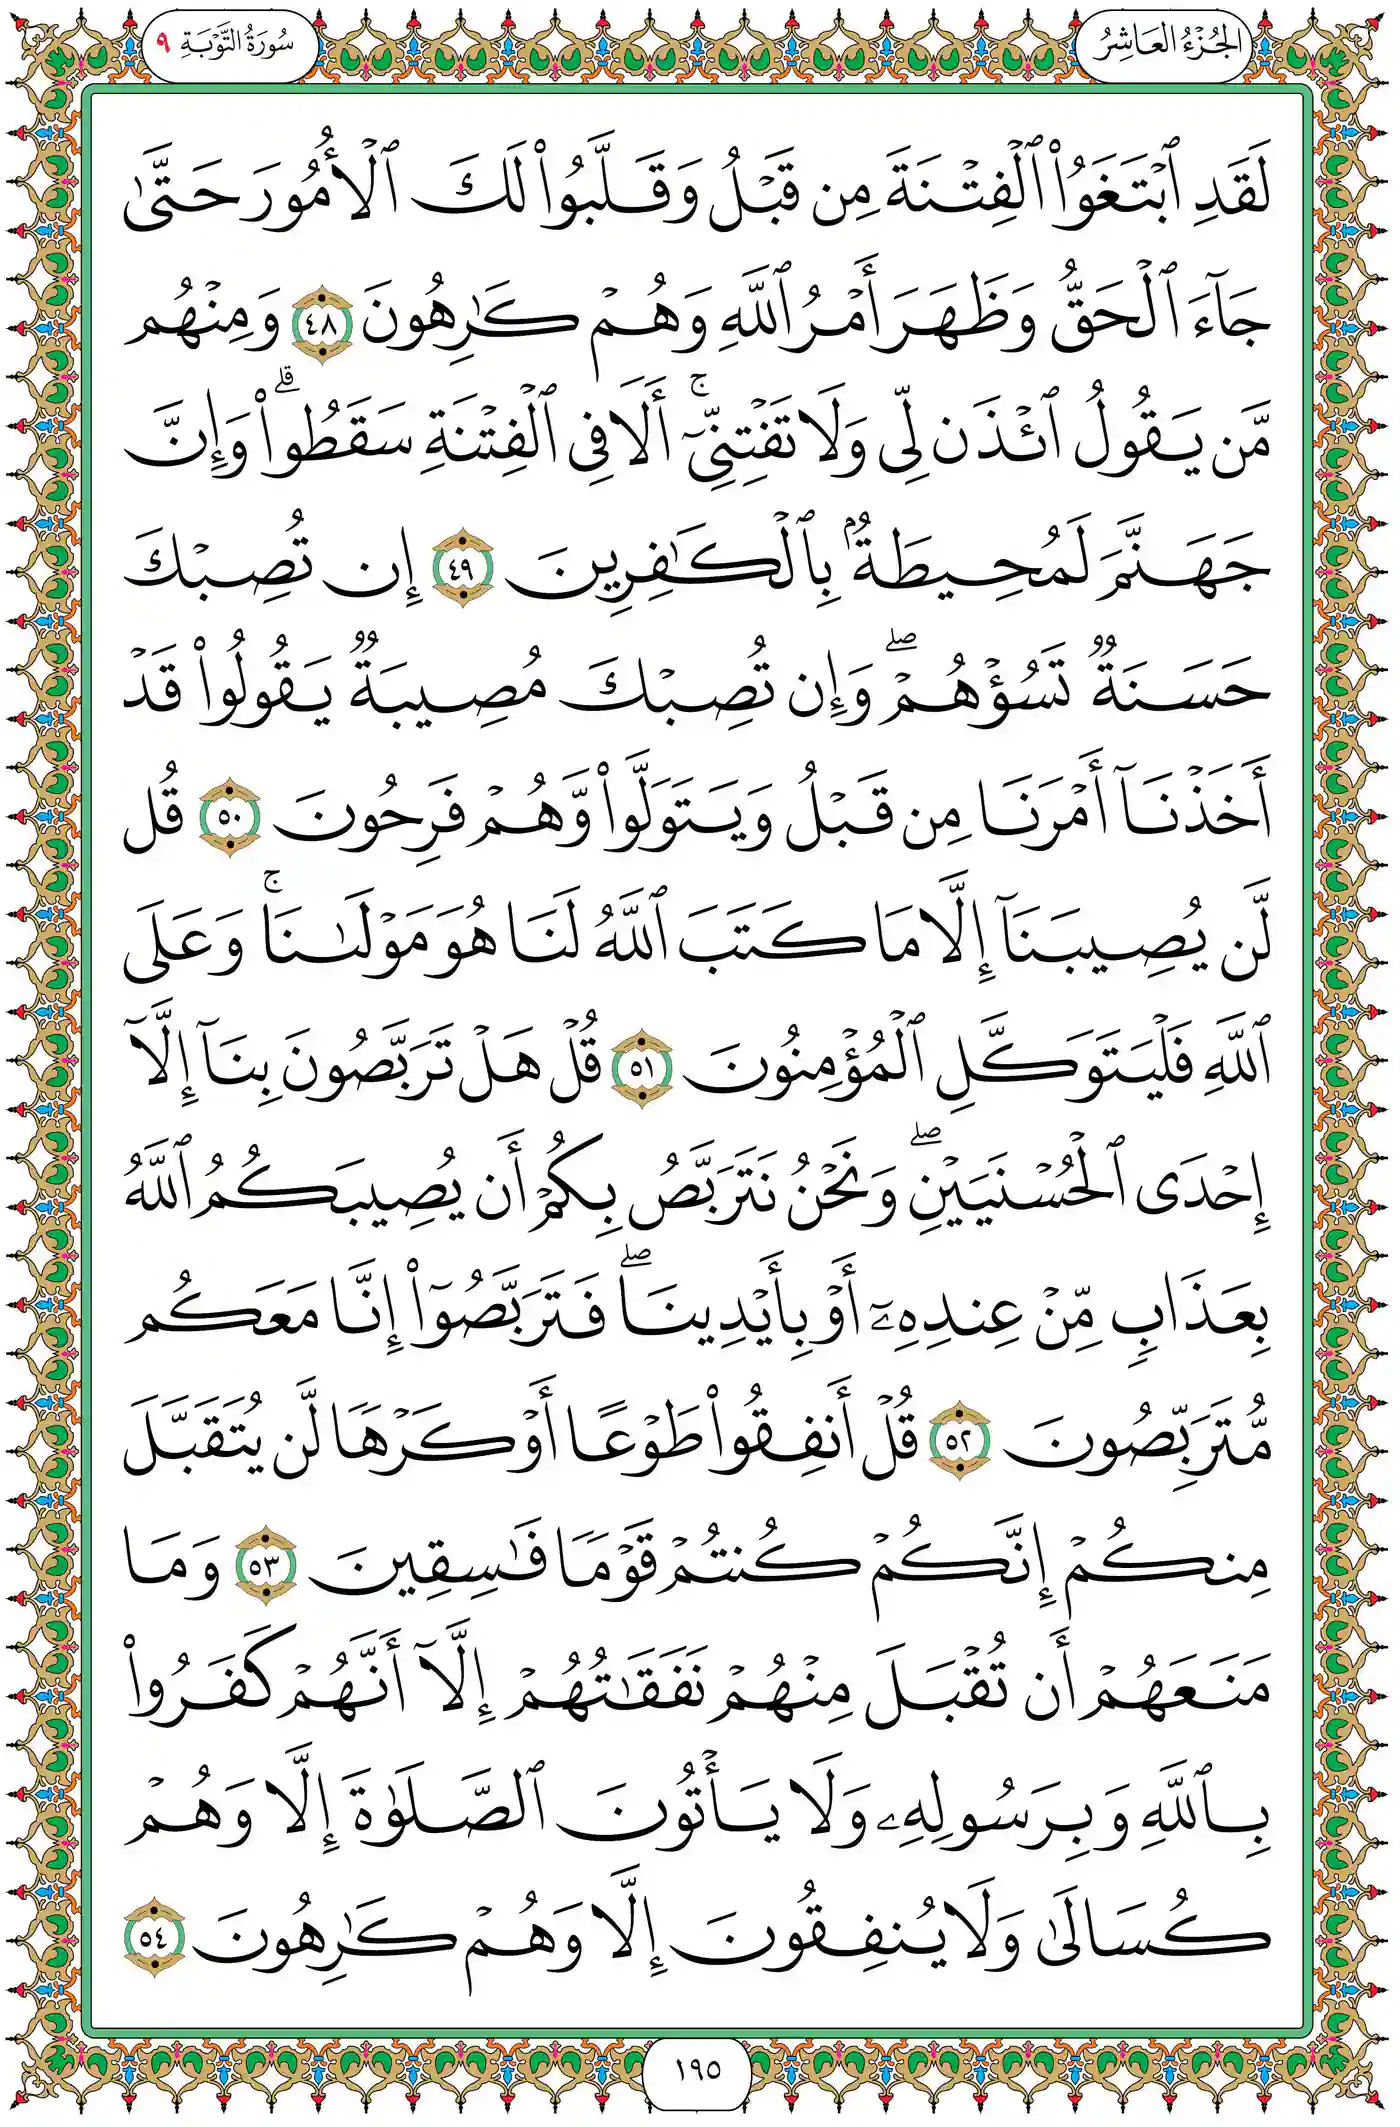 الجُزْءُ العَاشِرُ
سُورَةُ التَّوْبَةِ ٩
لَقَدِ ٱبْتَغَوُا۟ ٱلْفِتْنَةَ مِن قَبْلُ وَقَلَّبُوا۟ لَكَ ٱلْأُمُورَ حَتَّىٰ
جَآءَ ٱلْحَقُّ وَظَهَرَ أَمْرُ ٱللَّهِ وَهُمْ كَـٰرِهُونَ ٤٨ وَمِنْهُم
مَّن يَقُولُ ٱئْذَن لِّى وَلَا تَفْتِنِّىٓ ۚ أَلَا فِى ٱلْفِتْنَةِ سَقَطُوا۟ ۗ وَإِنَّ
جَهَنَّمَ لَمُحِيطَةٌۢ بِٱلْكَـٰفِرِينَ ٤٩ إِن تُصِبْكَ
حَسَنَةٌ تَسُؤْهُمْ ۖ وَإِن تُصِبْكَ مُصِيبَةٌ يَقُولُوا۟ قَدْ
أَخَذْنَآ أَمْرَنَا مِن قَبْلُ وَيَتَوَلَّوا۟ وَّهُمْ فَرِحُونَ ٥٠ قُل
لَّن يُصِيبَنَآ إِلَّا مَا كَتَبَ ٱللَّهُ لَنَا هُوَ مَوْلَىٰنَا ۚ وَعَلَى
ٱللَّهِ فَلْيَتَوَكَّلِ ٱلْمُؤْمِنُونَ ٥١ قُلْ هَلْ تَرَبَّصُونَ بِنَآ إِلَّآ
إِحْدَى ٱلْحُسْنَيَيْنِ ۖ وَنَحْنُ نَتَرَبَّصُ بِكُمْ أَن يُصِيبَكُمُ ٱللَّهُ
بِعَذَابٍ مِّنْ عِندِهِۦٓ أَوْ بِأَيْدِينَا ۖ فَتَرَبَّصُوٓا۟ إِنَّا مَعَكُم
مُّتَرَبِّصُونَ ٥٢ قُلْ أَنفِقُوا۟ طَوْعًا أَوْ كَرْهًا لَّن يُتَقَبَّلَ
مِنكُمْ إِنَّكُمْ كُنتُمْ قَوْمًا فَـٰسِقِينَ ٥٣ وَمَا
مَنَعَهُمْ أَن تُقْبَلَ مِنْهُمْ نَفَقَـٰتُهُمْ إِلَّآ أَنَّهُمْ كَفَرُوا۟
بِٱللَّهِ وَبِرَسُولِهِۦ وَلَا يَأْتُونَ ٱلصَّلَوٰةَ إِلَّا وَهُمْ
كُسَالَىٰ وَلَا يُنفِقُونَ إِلَّا وَهُمْ كَـٰرِهُونَ ٥٤
١٩٥